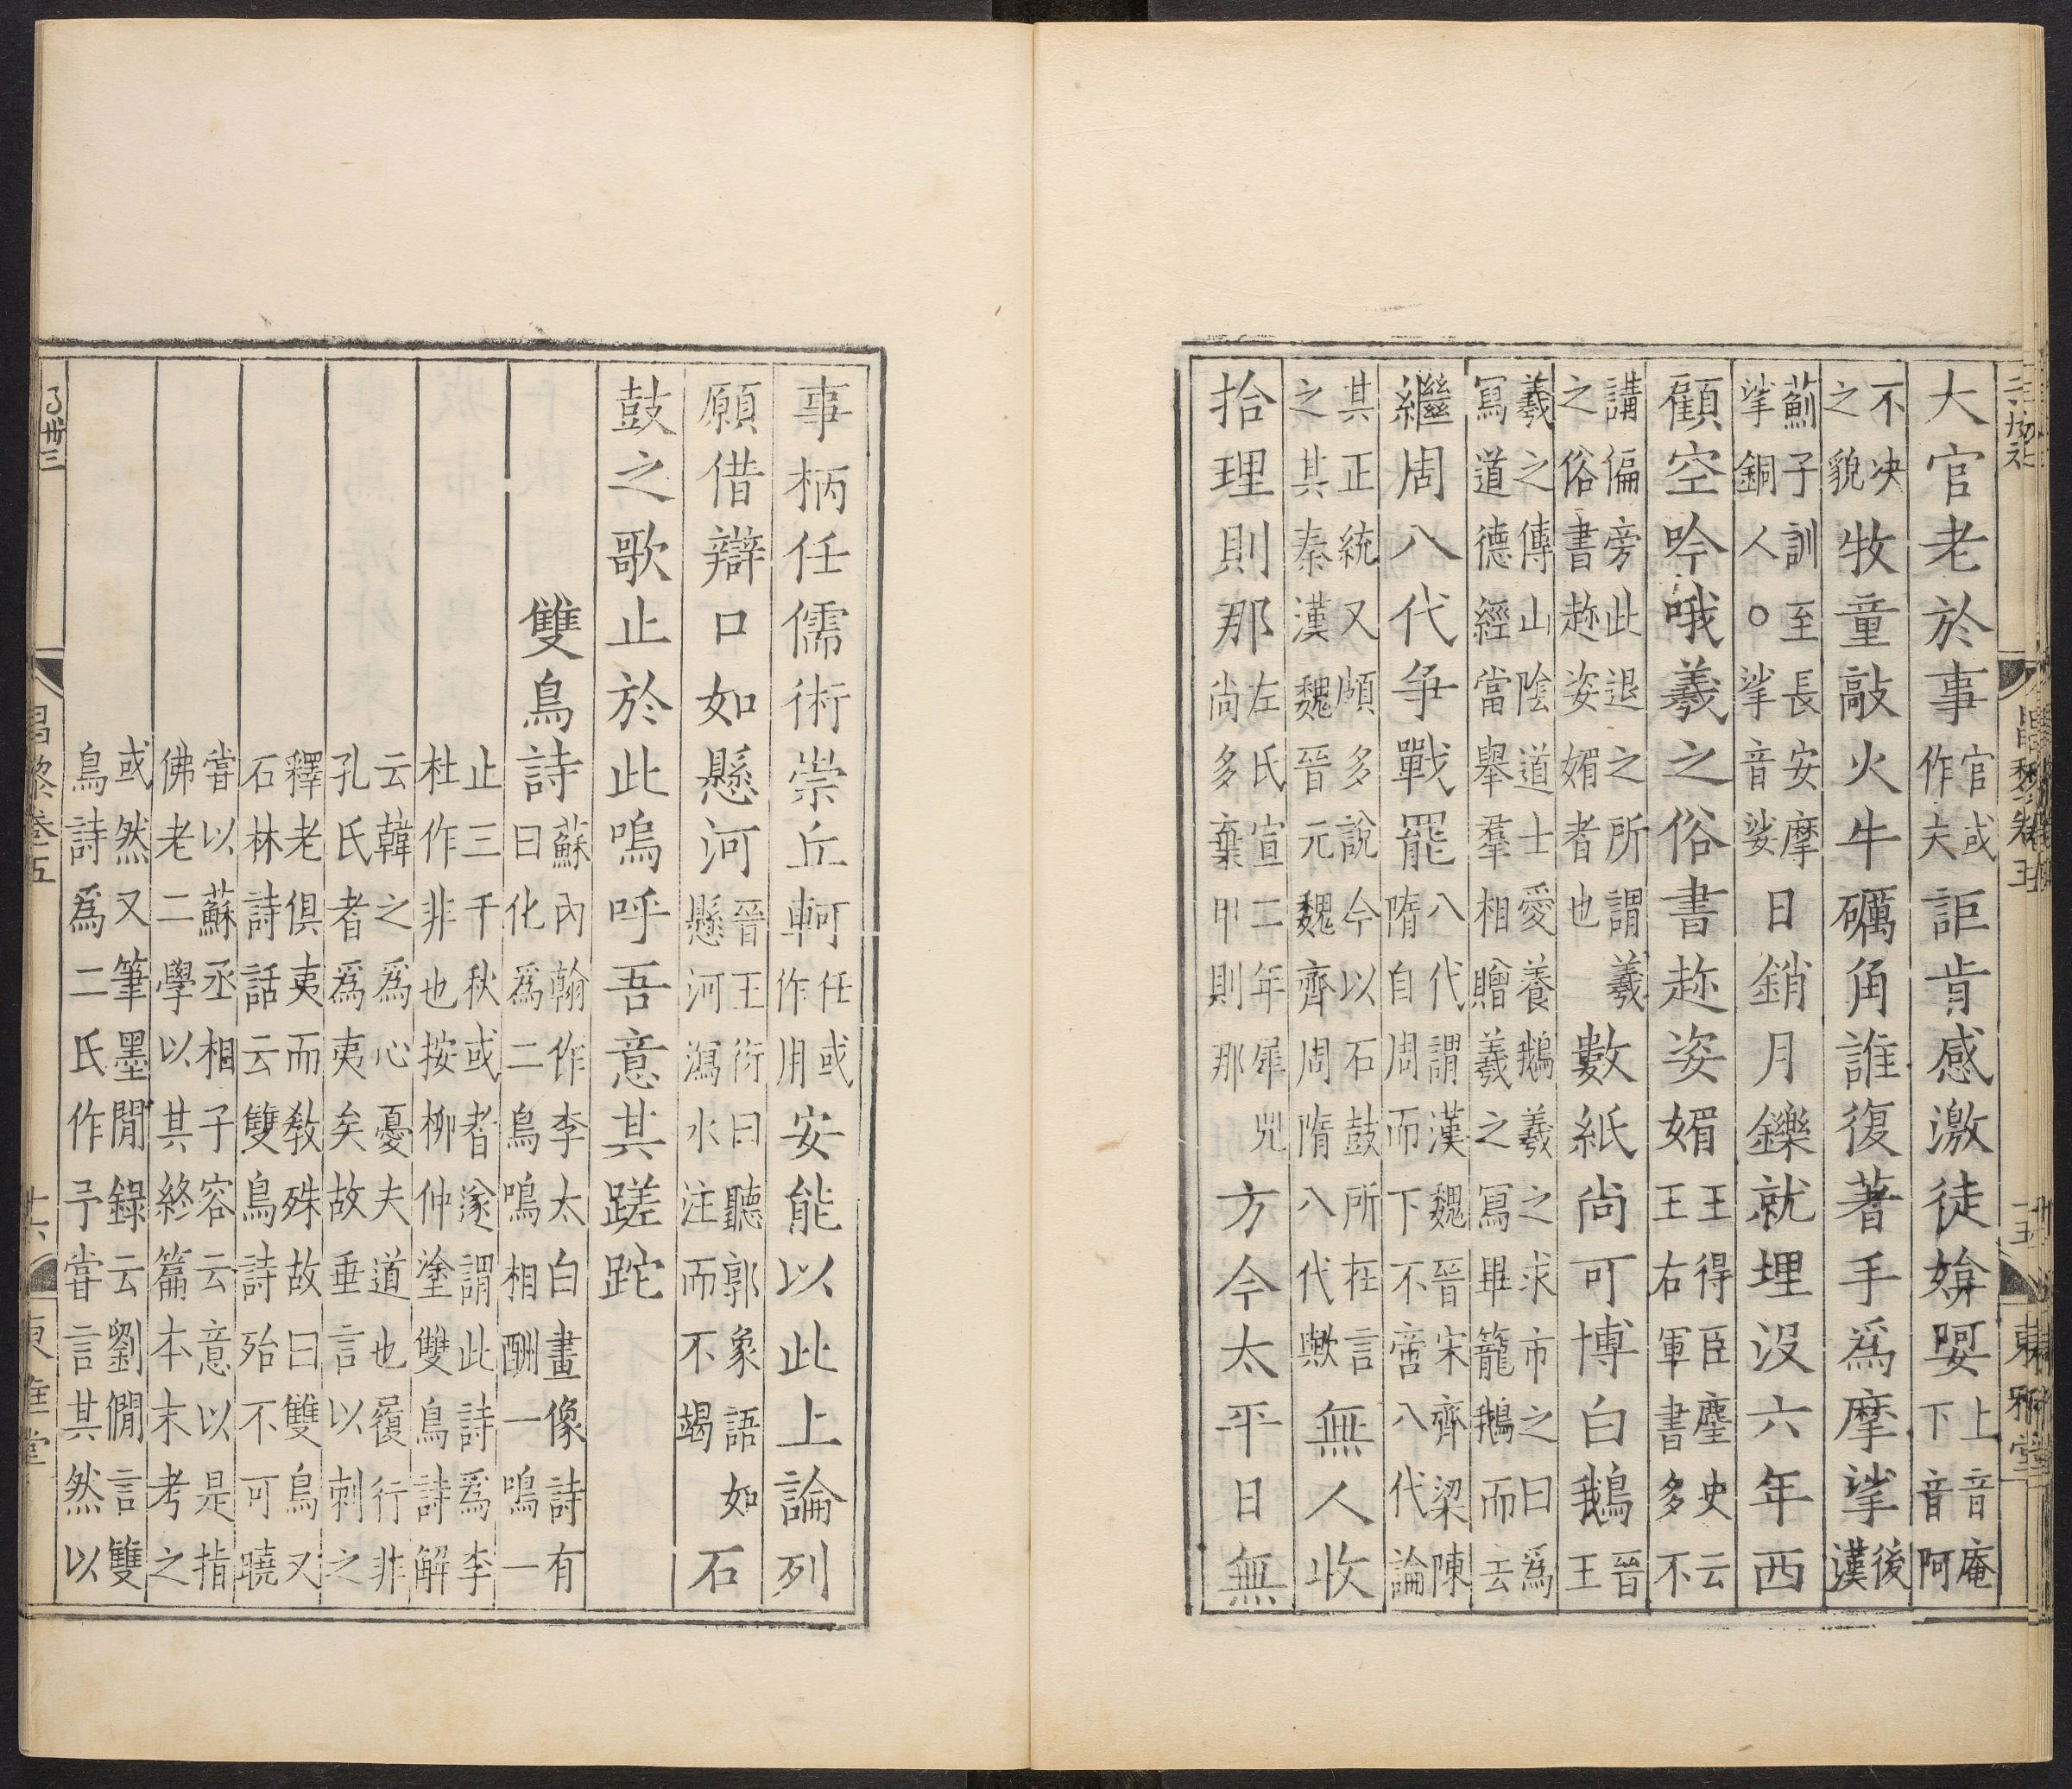 昌黎卷五 廿五 東雅堂
大官老於事官或作夫詎肯感激徒媕娿上音庵下音阿
不决之貌牧童敲火牛礪角誰復著手爲摩挲後漢
薊子訓至長安摩挲銅人○挲音娑日銷月鑠就埋没六年西
顧空吟哦羲之俗書趂姿媚王得臣麈史云王右軍書多不
講偏旁此退之所謂羲之俗書趂姿媚者也數紙尚可博白鵝晉王
羲之傳山陰道士愛養鵝羲之求市之曰爲寫道德經當舉羣相贈羲之寫畢籠鵝而去
繼周八代爭戰罷八代謂漢魏晉宋齊梁陳隋自周而下不啻八代論
其正統又頗多說今以石鼓所在言之其秦漢魏晉元魏齊周隋八代歟無人收
拾理則那左氏宣二年犀兕尚多棄甲則那方今太平日無
事柄任儒術崇丘軻任或作用安能以此上論列
願借辯口如懸河晉王衍曰聽郭象語如懸河瀉水注而不竭石
鼓之歌止於此嗚呼吾意其蹉跎
雙鳥詩蘇內翰作李太白畫像詩有曰化爲二鳥鳴相酬一鳴一
止三千秋或者遂謂此詩爲李杜作非也按柳仲塗雙鳥詩解
云韓之爲心憂夫道也履行非孔氏者爲夷矣故垂言以刺之
釋老俱夷而敎殊故曰雙鳥又石林詩話云雙鳥詩殆不可曉
甞以蘇丞相子容云意以是指佛老二學以其終篇本末考之
或然又筆墨閒錄云劉㦓言雙鳥詩爲二氏作予甞言其然以
昌黎卷五 廿六 東雅堂